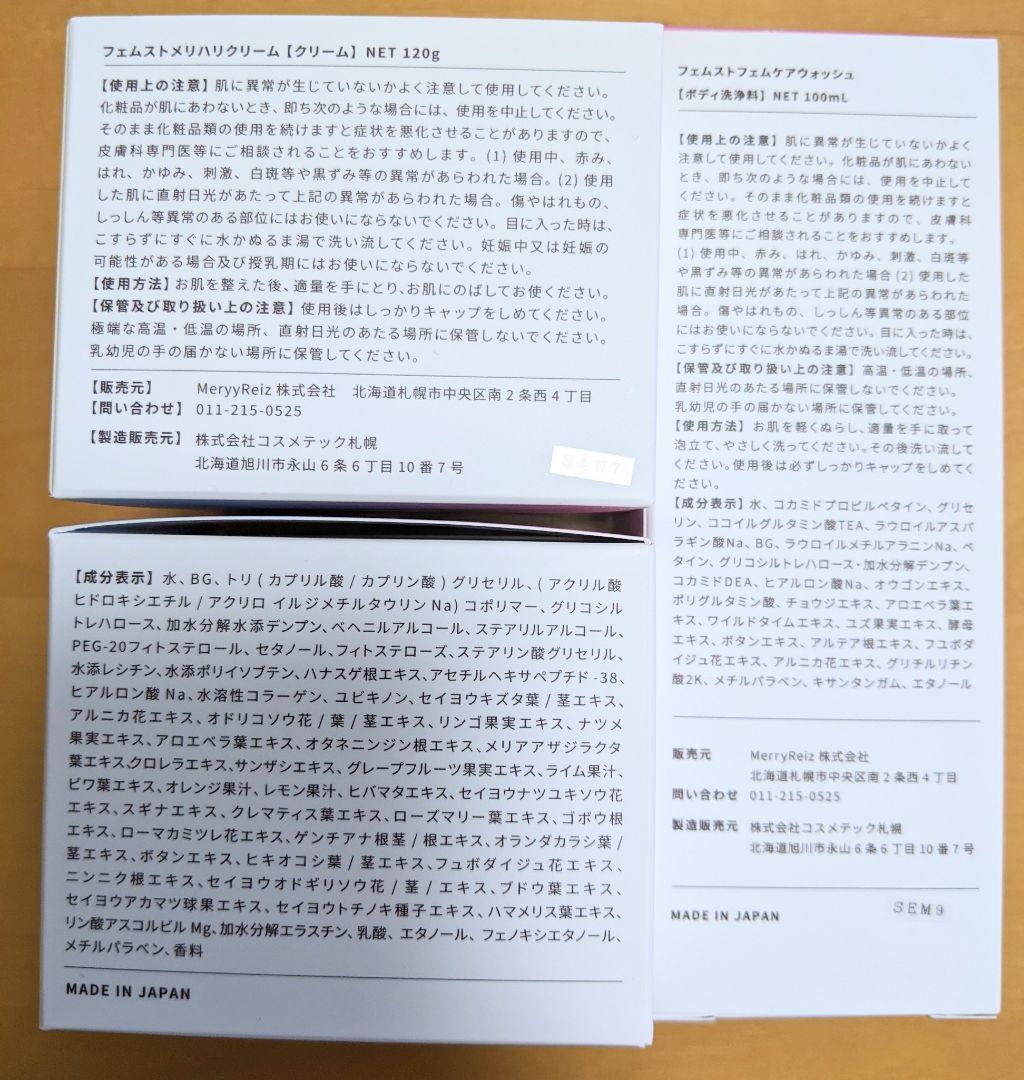 フェムストメリハリクリーム【クリーム】NET 120g
【使用上の注意】肌に異常が生じていないかよく注意して使用してください。
化粧品が肌にあわないとき、即ち次のような場合には、使用を中止してください。
そのまま化粧品類の使用を続けますと症状を悪化させることがありますので、
皮膚科専門医等にご相談されることをおすすめします。(1) 使用中、赤み、
はれ、かゆみ、刺激、白斑等や黒ずみ等の異常があらわれた場合。(2) 使用
した肌に直射日光があたって上記の異常があらわれた場合。傷やはれもの、
しっしん等異常のある部位にはお使いにならないでください。目に入った時は、
こすらずにすぐに水かぬるま湯で洗い流してください。妊娠中又は妊娠の
可能性がある場合及び授乳期にはお使いにならないでください。
【使用方法】お肌を整えた後、適量を手にとり、お肌にのばしてお使ください。
【保管及び取り扱い上の注意】使用後はしっかりキャップをしめてください。
極端な高温・低温の場所、直射日光のあたる場所に保管しないでください。
乳幼児の手の届かない場所に保管してください。
【販売元】 MeryyReiz 株式会社 北海道札幌市中央区南 2 条西 4 丁目
【問い合わせ】 011-215-0525
【製造販売元】 株式会社コスメテック札幌
北海道旭川市永山 6 条 6 丁目 10 番 7 号
SAN7
【成分表示】水、BG、トリ ( カプリル酸 / カプリン酸 ) グリセリル、( アクリル酸
ヒドロキシエチル / アクリロ イルジメチルタウリン Na) コポリマー、グリコシル
トレハロース、加水分解水添デンプン、ベヘニルアルコール、ステアリルアルコール、
PEG-20フィトステロール、セタノール、フィトステローズ、ステアリン酸グリセリル、
水添レシチン、水添ポリイソブテン、ハナスゲ根エキス、アセチルヘキサペプチド -38、
ヒアルロン酸 Na、水溶性コラーゲン、ユビキノン、セイヨウキズタ葉 / 茎エキス、
アルニカ花エキス、オドリコソウ花 / 葉 / 茎エキス、リンゴ果実エキス、ナツメ
果実エキス、アロエベラ葉エキス、オタネニンジン根エキス、メリアアザジラクタ
葉エキス、クロレラエキス、サンザシエキス、グレープフルーツ果実エキス、ライム果汁、
ビワ葉エキス、オレンジ果汁、レモン果汁、ヒバマタエキス、セイヨウナツユキソウ花
エキス、スギナエキス、クレマティス葉エキス、ローズマリー葉エキス、ゴボウ根
エキス、ローマカミツレ花エキス、ゲンチアナ根茎 / 根エキス、オランダカラシ葉 /
茎エキス、ボタンエキス、ヒキオコシ葉 / 茎エキス、フユボダイジュ花エキス、
ニンニク根エキス、セイヨウオドギリソウ花 / 茎 / エキス、ブドウ葉エキス、
セイヨウアカマツ球果エキス、セイヨウトチノキ種子エキス、ハマメリス葉エキス、
リン酸アスコルビル Mg、加水分解エラスチン、乳酸、エタノール、フェノキシエタノール、
メチルパラベン、香料
MADE IN JAPAN
フェムストフェムケアウォッシュ
【ボディ洗浄料】NET 100mL
【使用上の注意】肌に異常が生じていないかよく
注意して使用してください。化粧品が肌にあわない
とき、即ち次のような場合には、使用を中止して
ください。そのまま化粧品類の使用を続けますと
症状を悪化させることがありますので、皮膚科
専門医等にご相談されることをおすすめします。
(1) 使用中、赤み、はれ、かゆみ、刺激、白斑等
や黒ずみ等の異常があらわれた場合 (2) 使用した
肌に直射日光があたって上記の異常があらわれた
場合。傷やはれもの、しっしん等異常のある部位
にはお使いにならないでください。目に入った時は、
こすらずにすぐに水かぬるま湯で洗い流してください。
【保管及び取り扱い上の注意】高温・低温の場所、
直射日光のあたる場所に保管しないでください。
乳幼児の手の届かない場所に保管してください。
【使用方法】お肌を軽くぬらし、適量を手に取って
泡立て、やさしく洗ってください。その後洗い流して
ください。使用後は必ずしっかりキャップをしめてく
ださい。
【成分表示】水、コカミドプロピルベタイン、グリセ
リン、ココイルグルタミン酸TEA、ラウロイルアスパ
ラギン酸Na、BG、ラウロイルメチルアラニンNa、ベ
タイン、グリコシルトレハロース・加水分解デンプン、
コカミドDEA、ヒアルロン酸Na、オウゴンエキス、
ポリグルタミン酸、チョウジエキス、アロエベラ葉エ
キス、ワイルドタイムエキス、ユズ果実エキス、酵母
エキス、ボタンエキス、アルテア根エキス、フユボダ
イジュ花エキス、アルニカ花エキス、グリチルリチン
酸2K、メチルパラベン、キサンタンガム、エタノール
販売元 MerryReiz 株式会社
北海道札幌市中央区南 2 条西 4 丁目
問い合わせ 011-215-0525
製造販売元 株式会社コスメテック札幌
北海道旭川市永山 6 条 6 丁目 10 番 7 号
MADE IN JAPAN
SEM9